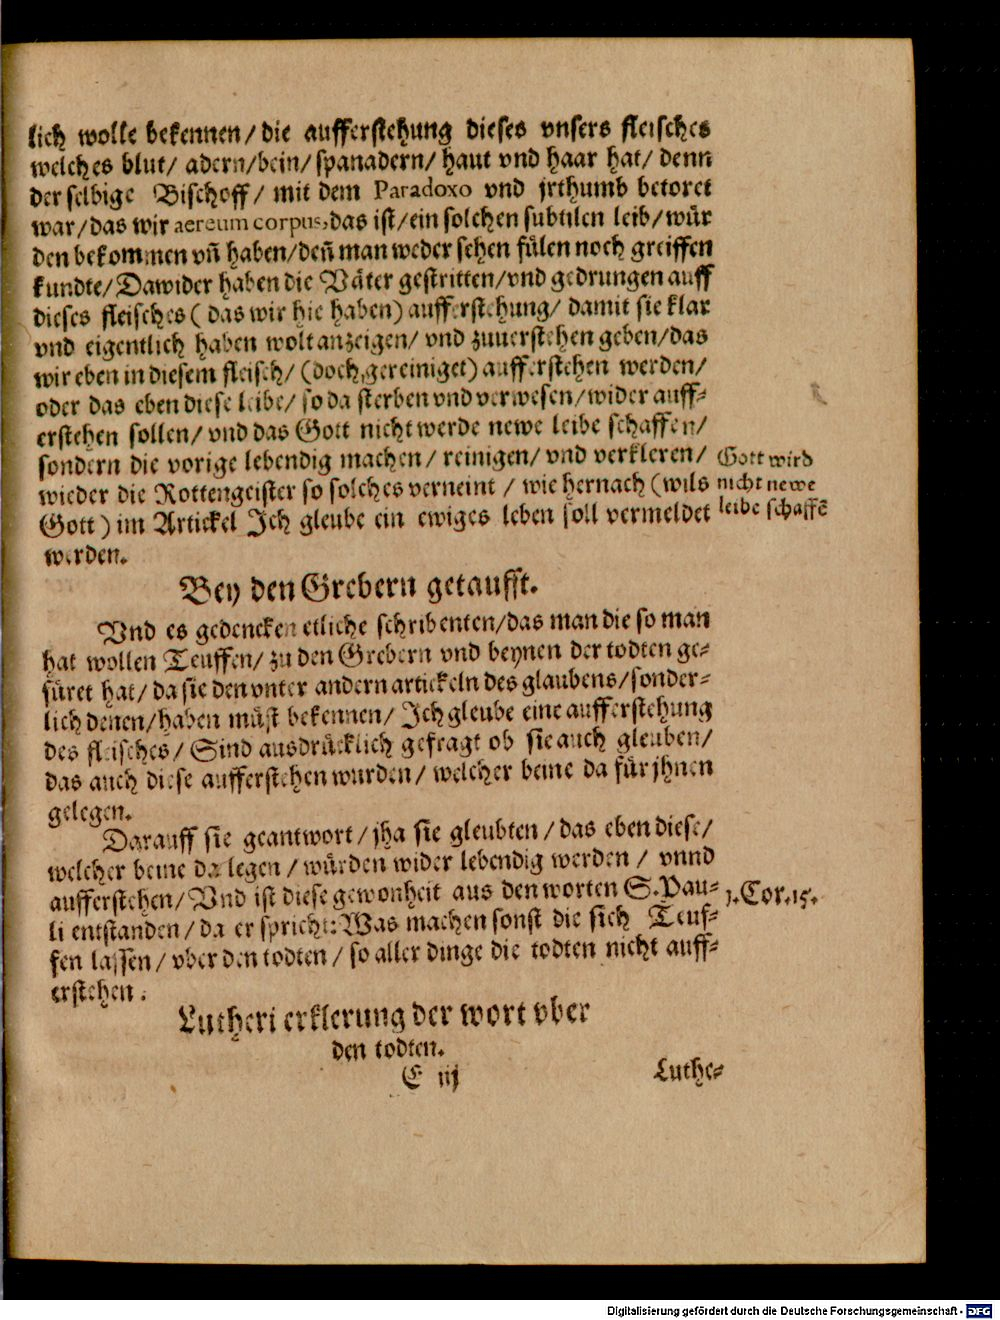 lich wolle bekennen/ die aufferstehung dieses vnsers fleisches
welches blut/ adern/bein/ spanadern/ haut vnd haar hat/ denn
der selbige Bischoff/ mit dem Paradoxo vnd jrthumb betoret
war/das wir aereum corpus, das ist/ein solchen subtilen leib/wür
den bekommen vñ haben/deñ man weder sehen fülen noch greiffen
kundte/Dawider haben die Väter gestritten/vnd gedrungen auff
dieses fleisches ( das wir hie haben) aufferstehung/ damit sie klar
vnd eigentlich haben wolt anzeigen/ vnd zuuerstehen geben/das
wir eben in diesem fleisch/ (doch gereiniget) aufferstehen werden/
oder das eben diese leibe/ so da sterben vnd verwesen/wider auff-
erstehen sollen/ vnd das Gott nicht werde newe leibe schaffen/
sondern die vorige lebendig machen/ reinigen/ vnd verkleren/
wieder die Rottengeister so solches verneint / wie hernach (wils
Gott) im Artickel Ich gleube ein ewiges leben soll vermeldet
werden.
Gott wird
nicht newe
leibe schaffẽ
Bey den Grebern getaufft.
Vnd es gedencken etliche schribenten/das man die so man
hat wollen Teuffen/ zu den Grebern vnd beynen der todten ge-
füret hat/ da sie den vnter andern artickeln des glaubens/sonder-
lich denen/haben müst bekennen/ Ich gleube eine aufferstehung
des fleisches/ Sind ausdrücklich gefragt ob sie auch gleuben/
das auch diese aufferstehen wurden/ welcher beine da für jhnen
gelegen.
Darauff sie geantwort/ jha sie gleubten/das eben diese/
welcher beine da legen / würden wider lebendig werden / vnnd
aufferstehen/ Vnd ist diese gewonheit aus den worten S. Pau-
li entstanden/ da er spricht: Was machen sonst die sich Teuf-
fen lassen/ vber den todten/ so aller dinge die todten nicht auff-
erstehen.
1. Cor. 15.
Lutheri erklerung der wort vber
den todten.
E iij Luthe-
Digitalisierung gefördert durch die Deutsche Forschungsgemeinschaft - DFG